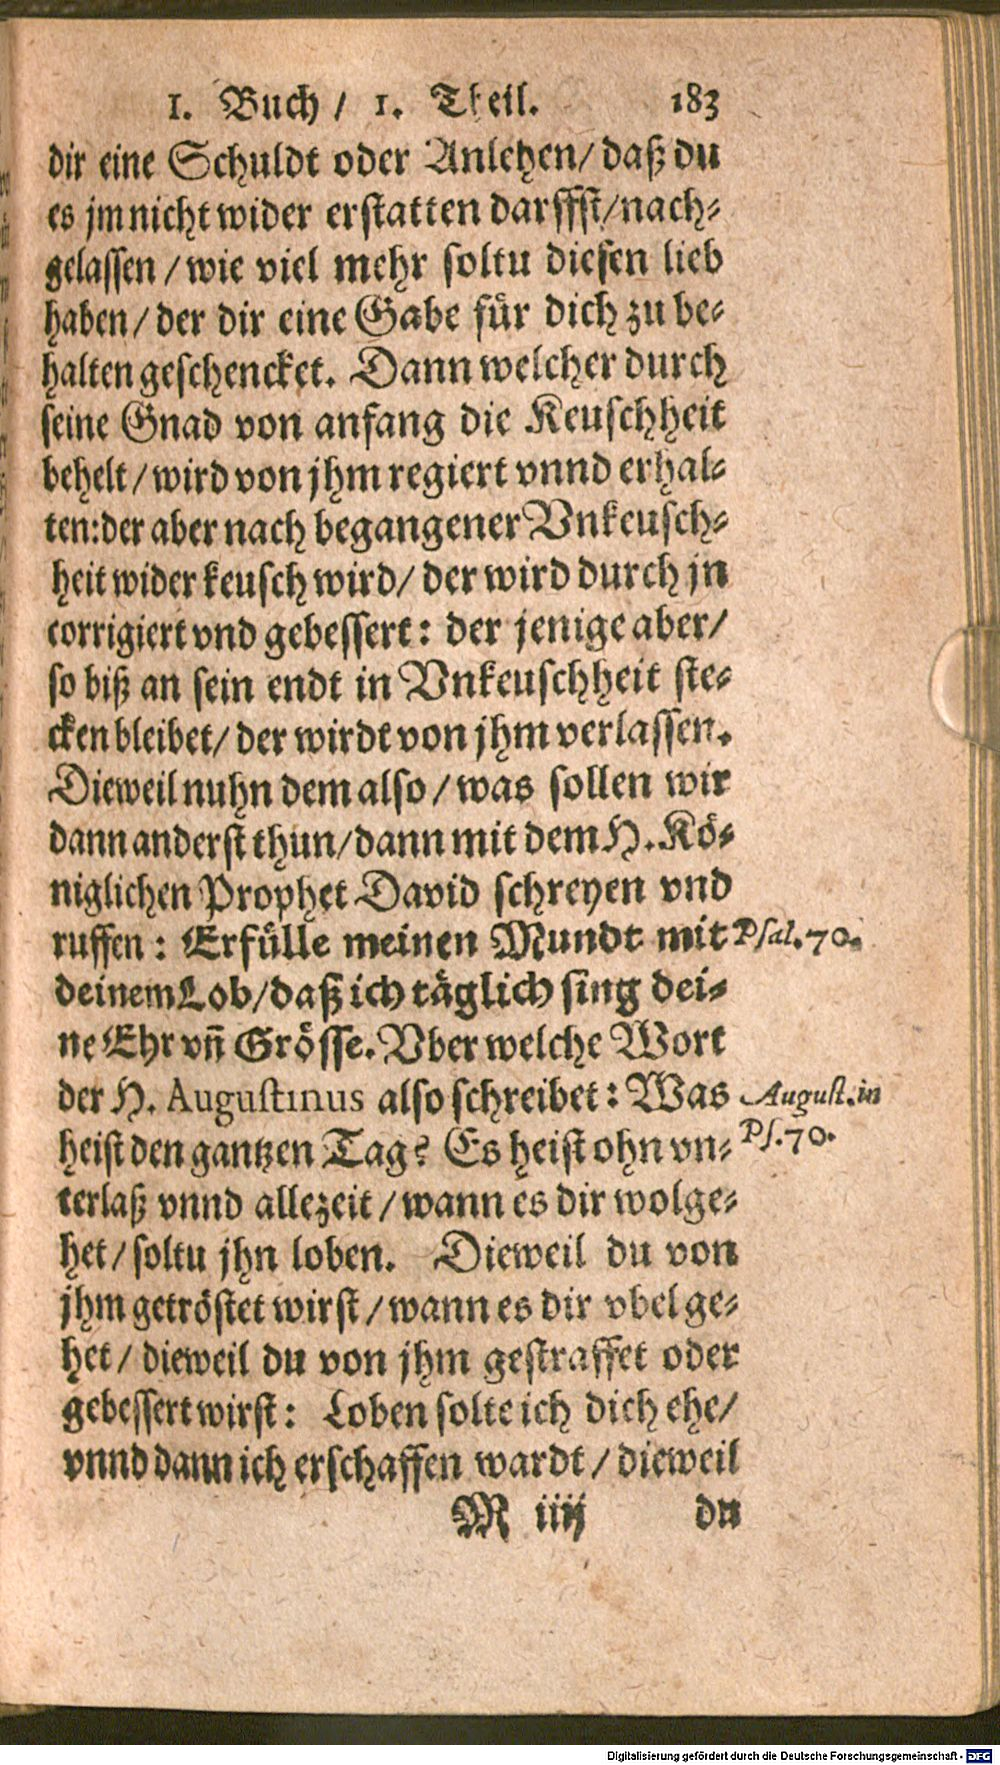 1. Buch / 1. Theil. 183
dir eine Schuldt oder Anlehen / daß du
es jm nicht wider erstatten darffst / nach⸗
gelassen / wie viel mehr soltu diesen lieb
haben / der dir eine Gabe für dich zu be⸗
halten geschencket. Dann welcher durch
seine Gnad von anfang die Keuschheit
behelt / wird von jhm regiert vnnd erhal⸗
ten: der aber nach begangener Vnkeusch⸗
heit wider keusch wird / der wird durch jn
corrigiert vnd gebessert: der jenige aber /
so biß an sein endt in Vnkeuschheit ste⸗
cken bleibet / der wirdt von jhm verlassen.
Dieweil nuhn dem also / was sollen wir
dann anderst thun / dann mit dem H. Kö⸗
niglichen Prophet David schreyen vnd
ruffen: Erfülle meinen Mundt mit Psal. 70.
deinem Lob / daß ich täglich sing dei⸗
ne Ehr vñ Grösse. Vber welche Wort
der H. Augustinus also schreibet: Was August. in
heist den gantzen Tag? Es heist ohn vn⸗ Ps. 70.
terlaß vnnd allezeit / wann es dir wolge⸗
het / soltu jhn loben. Dieweil du von
jhm getröstet wirst / wann es dir vbel ge⸗
het / dieweil du von jhm gestraffet oder
gebessert wirst: Loben solte ich dich ehe /
vnnd dann ich erschaffen wardt / dieweil
M iiij du
Digitalisierung gefördert durch die Deutsche Forschungsgemeinschaft - DFG